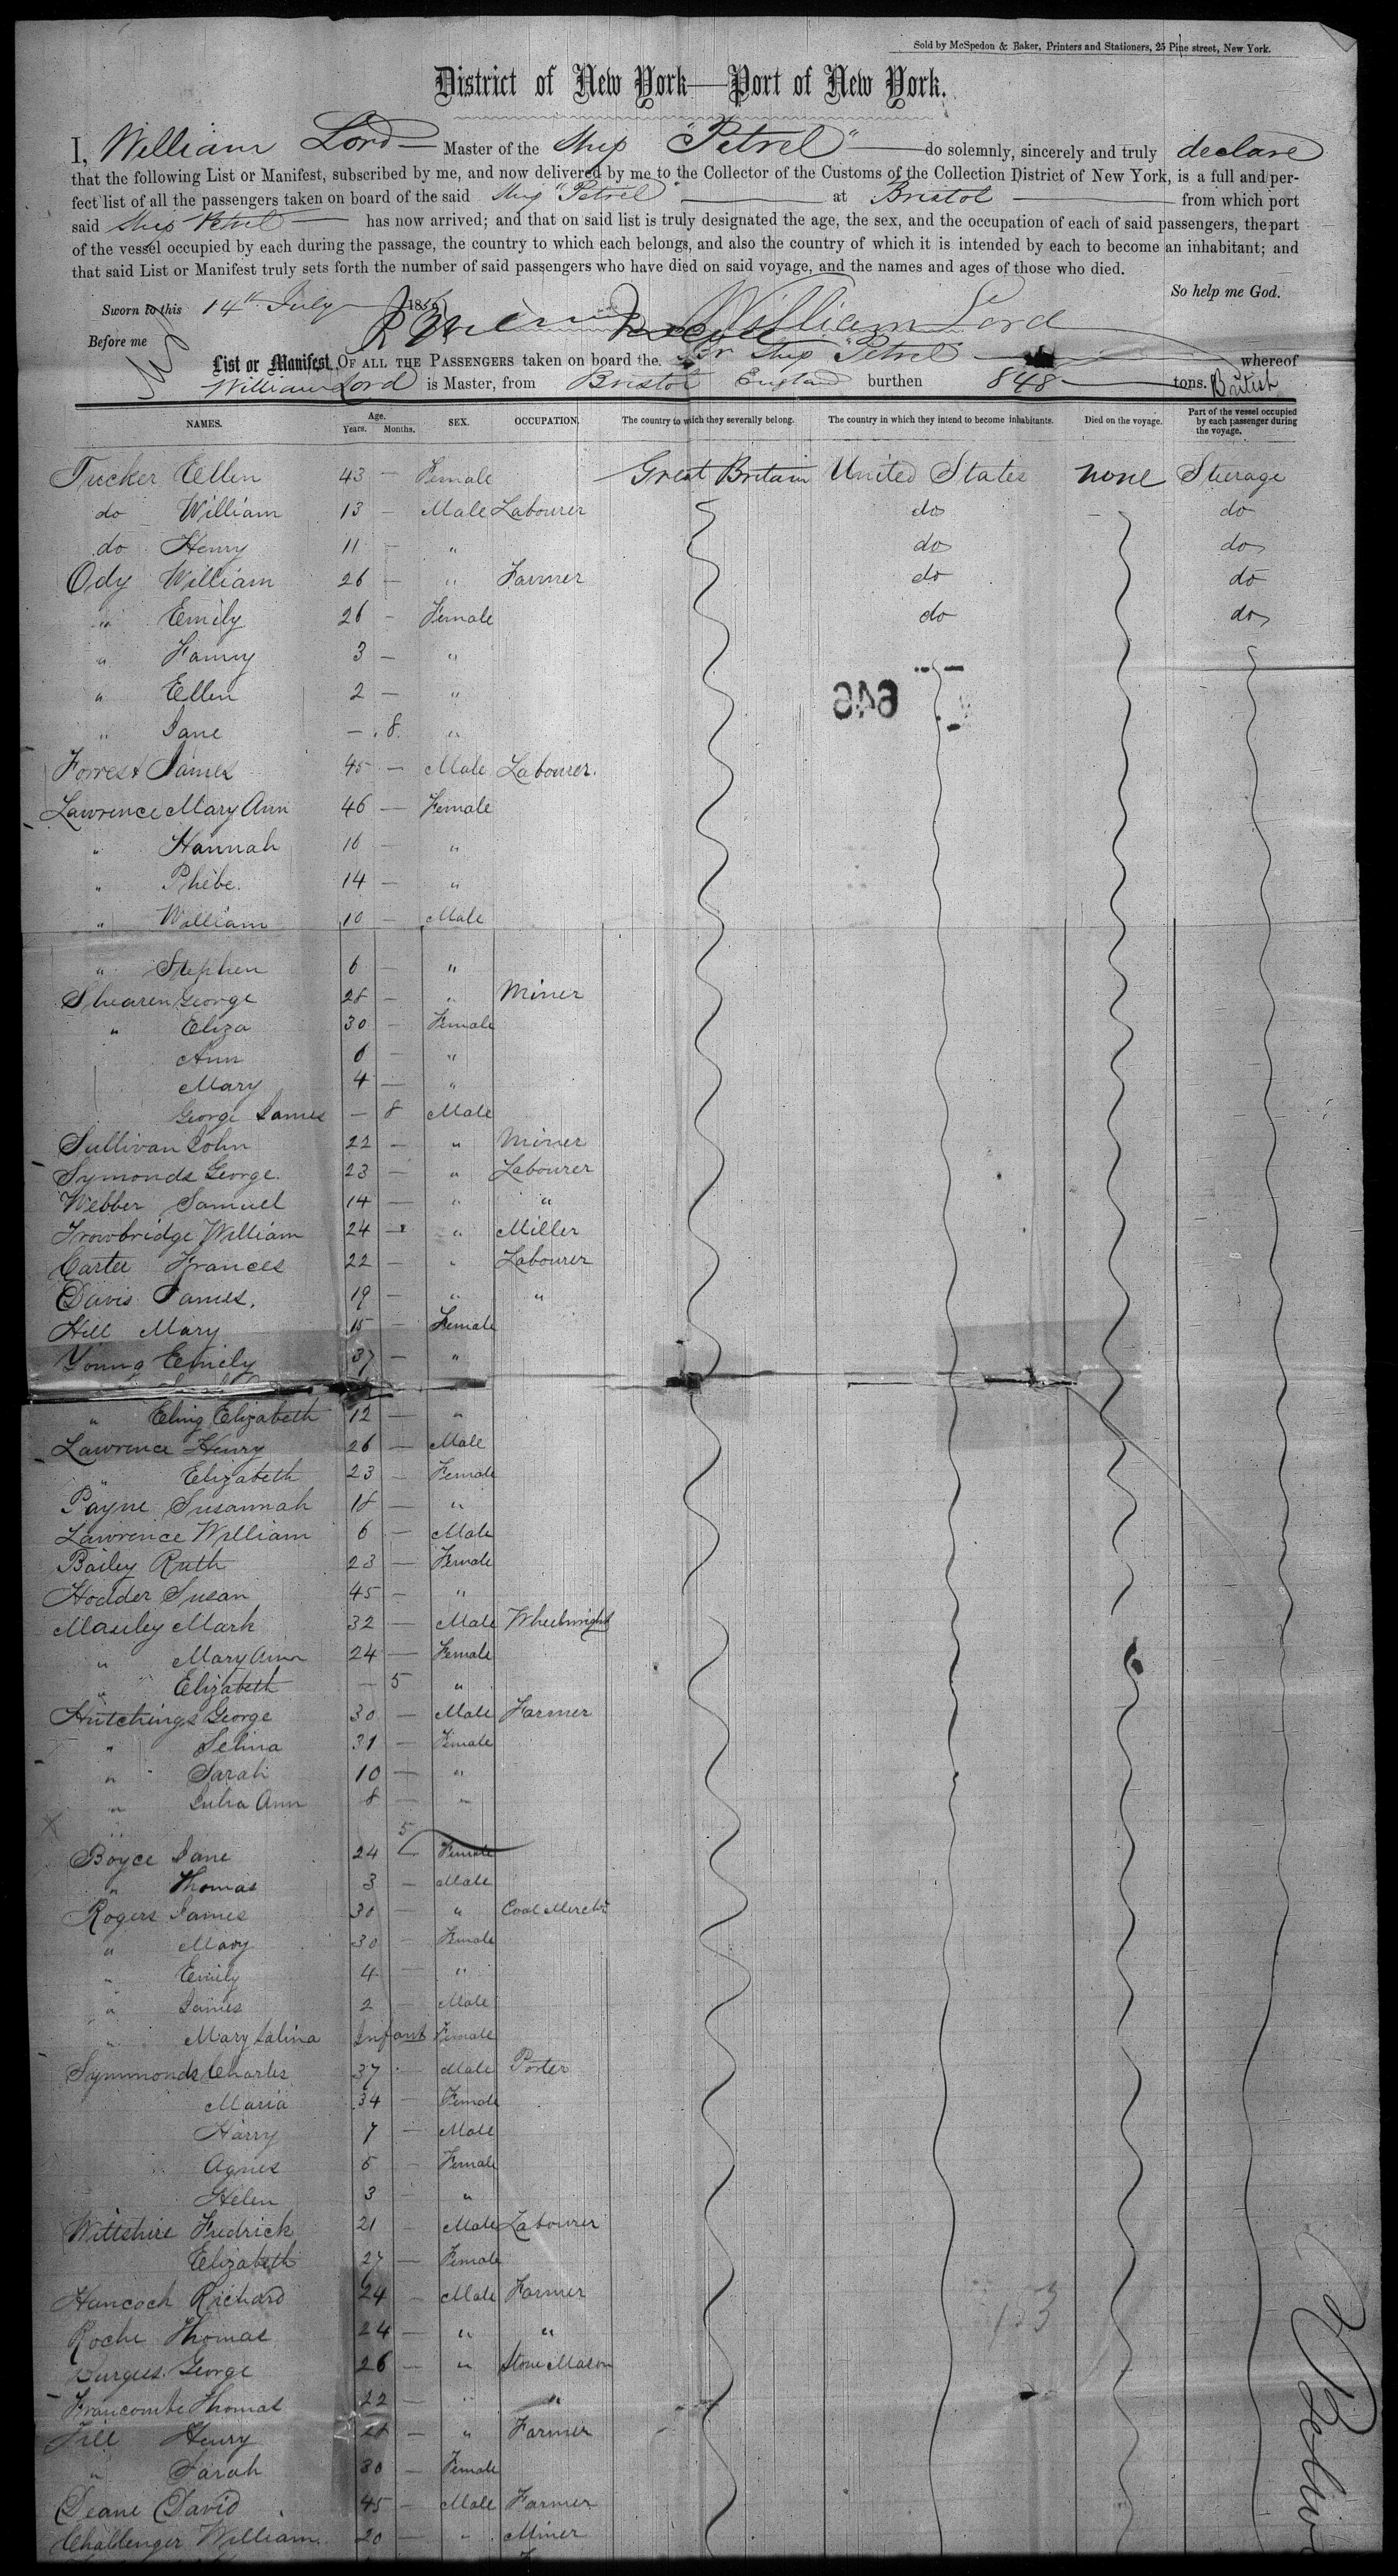 Sold by McSpedon & Baker, Printers and Stationers, 25 Pine street, New York.
District of New York—Port of New York.
I, William Lord Master of the Ship "Petrel" do solemnly, sincerely and truly declare
that the following List or Manifest, subscribed by me, and now delivered by me to the Collector of the Customs of the Collection District of New York, is a full and per-
fect list of all the passengers taken on board of the said Ship "Petrel" at Bristol from which port
said Ship Petrel has now arrived; and that on said list is truly designated the age, the sex, and the occupation of each of said passengers, the part
of the vessel occupied by each during the passage, the country to which each belongs, and also the country of which it is intended by each to become an inhabitant; and
that said List or Manifest truly sets forth the number of said passengers who have died on said voyage, and the names and ages of those who died.
So help me God.
Sworn to this 14th July 18
William Lord
Before me
List or Manifest, OF ALL THE PASSENGERS taken on board the Br Ship "Petrel" whereof
William Lord is Master, from Bristol England burthen 848 tons. British
NAMES. Age. Years. Months. SEX. OCCUPATION. The country to which they severally belong. The country in which they intend to become inhabitants. Died on the voyage. Part of the vessel occupied by each passenger during the voyage.
Tucker Ellen 43 — Female Great Britain United States none Sterage
do William 13 — Male Labourer do do
do Henry 11 — " do do
Ody William 26 — " Farmer do do
" Emily 26 — Female do do
" Fanny 3 — "
" Ellen 2 — "
" Jane — 8 "
Forrest James 45 — Male Labourer.
Lawrence Mary Ann 46 — Female
" Hannah 16 — "
" Phebe. 14 — "
" William 10 — Male
" Stephen 6 — "
Shearen George 28 — " Miner
" Eliza 30 — Female
Ann 6 — "
Mary 4 — "
George James — 8 Male
Sullivan John 22 — " Miner
Symonds George. 23 — " Labourer
Webber Samuel 14 — " "
Trowbridge William 24 — " Miller
Carter Frances 22 — " Labourer
Davis James. 19 — " "
Hill Mary 15 — Female
Young Emily 37 — "
" Eling Elizabeth 12 — "
Lawrence Henry 26 — Male
" Elizabeth 23 — Female
Payne Susannah 18 — "
Lawrence William 6 — Male
Bailey Ruth 23 — Female
Hodder Susan 45 — "
Mauley Mark 32 — Male Wheelwright
" Mary Ann 24 — Female
" Elizabeth — 5 "
Hutchings George 30 — Male Farmer
" Selina 31 — Female
" Sarah 10 — "
" Julia Ann 8 — "
5
Boyce Jane 24 Female
" Thomas 3 — Male
Rogers James 30 — " Coal Mercht
" Mary 30 — Female
" Emily 4 — "
" James 2 — Male
" Mary Salina Infant Female
Symmonds Charles 37 — Male Porter
Maria 34 — Female
Harry 7 — Male
Agnes 5 — Female
Helen 3 — "
Wiltshire Fredrick 21 — Male Labourer
Elizabeth 27 — Female
Hancock Richard 24 — Male Farmer
Roche Thomas 24 — " "
Burgess George 26 — " Stone Mason
Francombe Thomas 22 — " "
Jill Henry 28 — " Farmer
" Sarah 30 — Female
Deane David 45 — Male Farmer
Challenger William 20 — " Miner